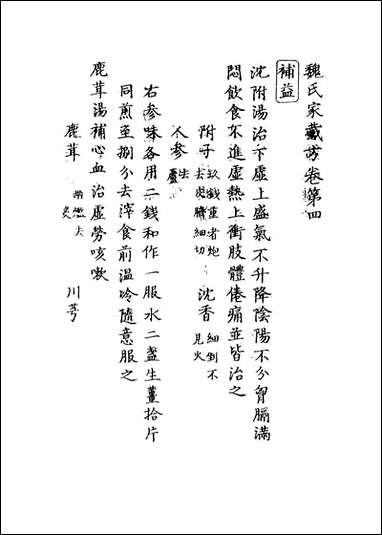 魏氏家藏方卷第四
補益
沈附湯治下虛上盛氣不升降陰陽不分胷膈滿
悶飲食不進虛熱上衝肢體倦痛並皆治之
附子 玖錢重者炮去皮臍細切 沈香 細剉不見火
人參 去蘆
右參味各用二錢和作一服水二盞生薑拾片
同煎至捌分去滓食前温冷隨意服之
鹿茸湯補心血治虛勞咳嗽
鹿茸 去 炙 川芎